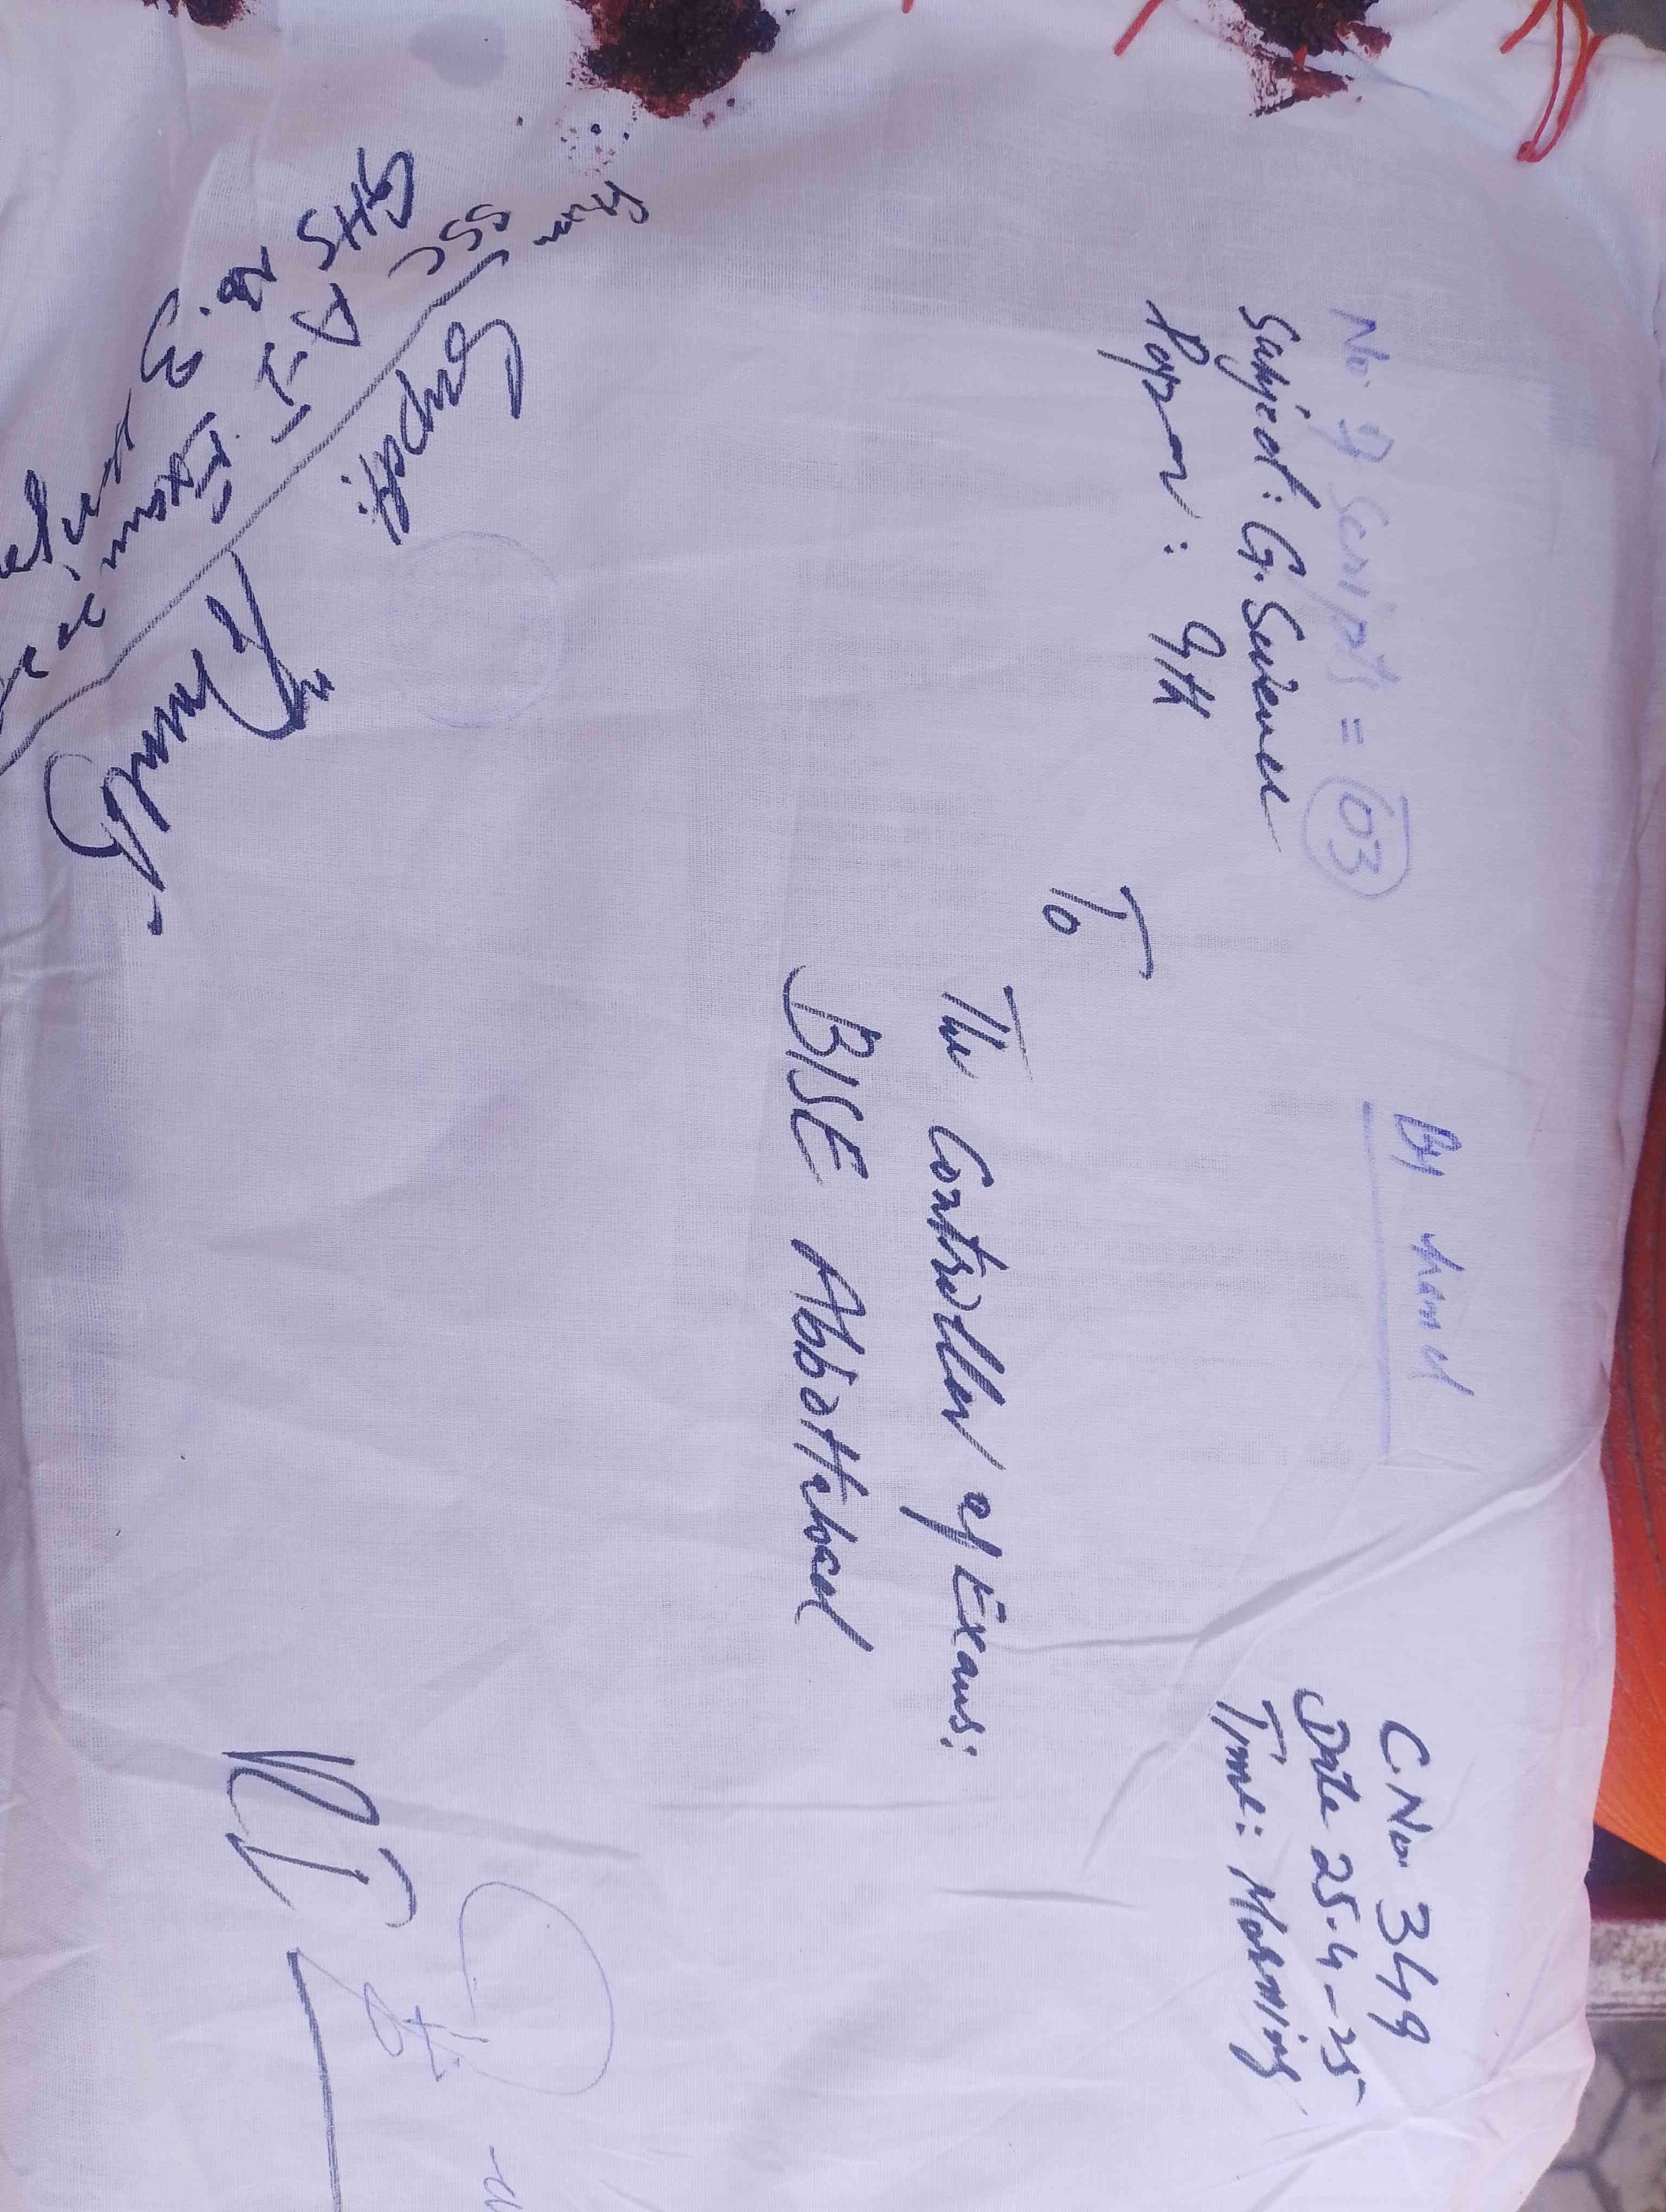 By hand
C.No. 349
Date 25-4-25
Time: Morning
No of Scripts = 03
Subject: G. Science
Paper: 9th
To
The Controller of Exams:
BISE Abbottabad
From
Supdtt:
SSC A-I Exam
GHS No. 3